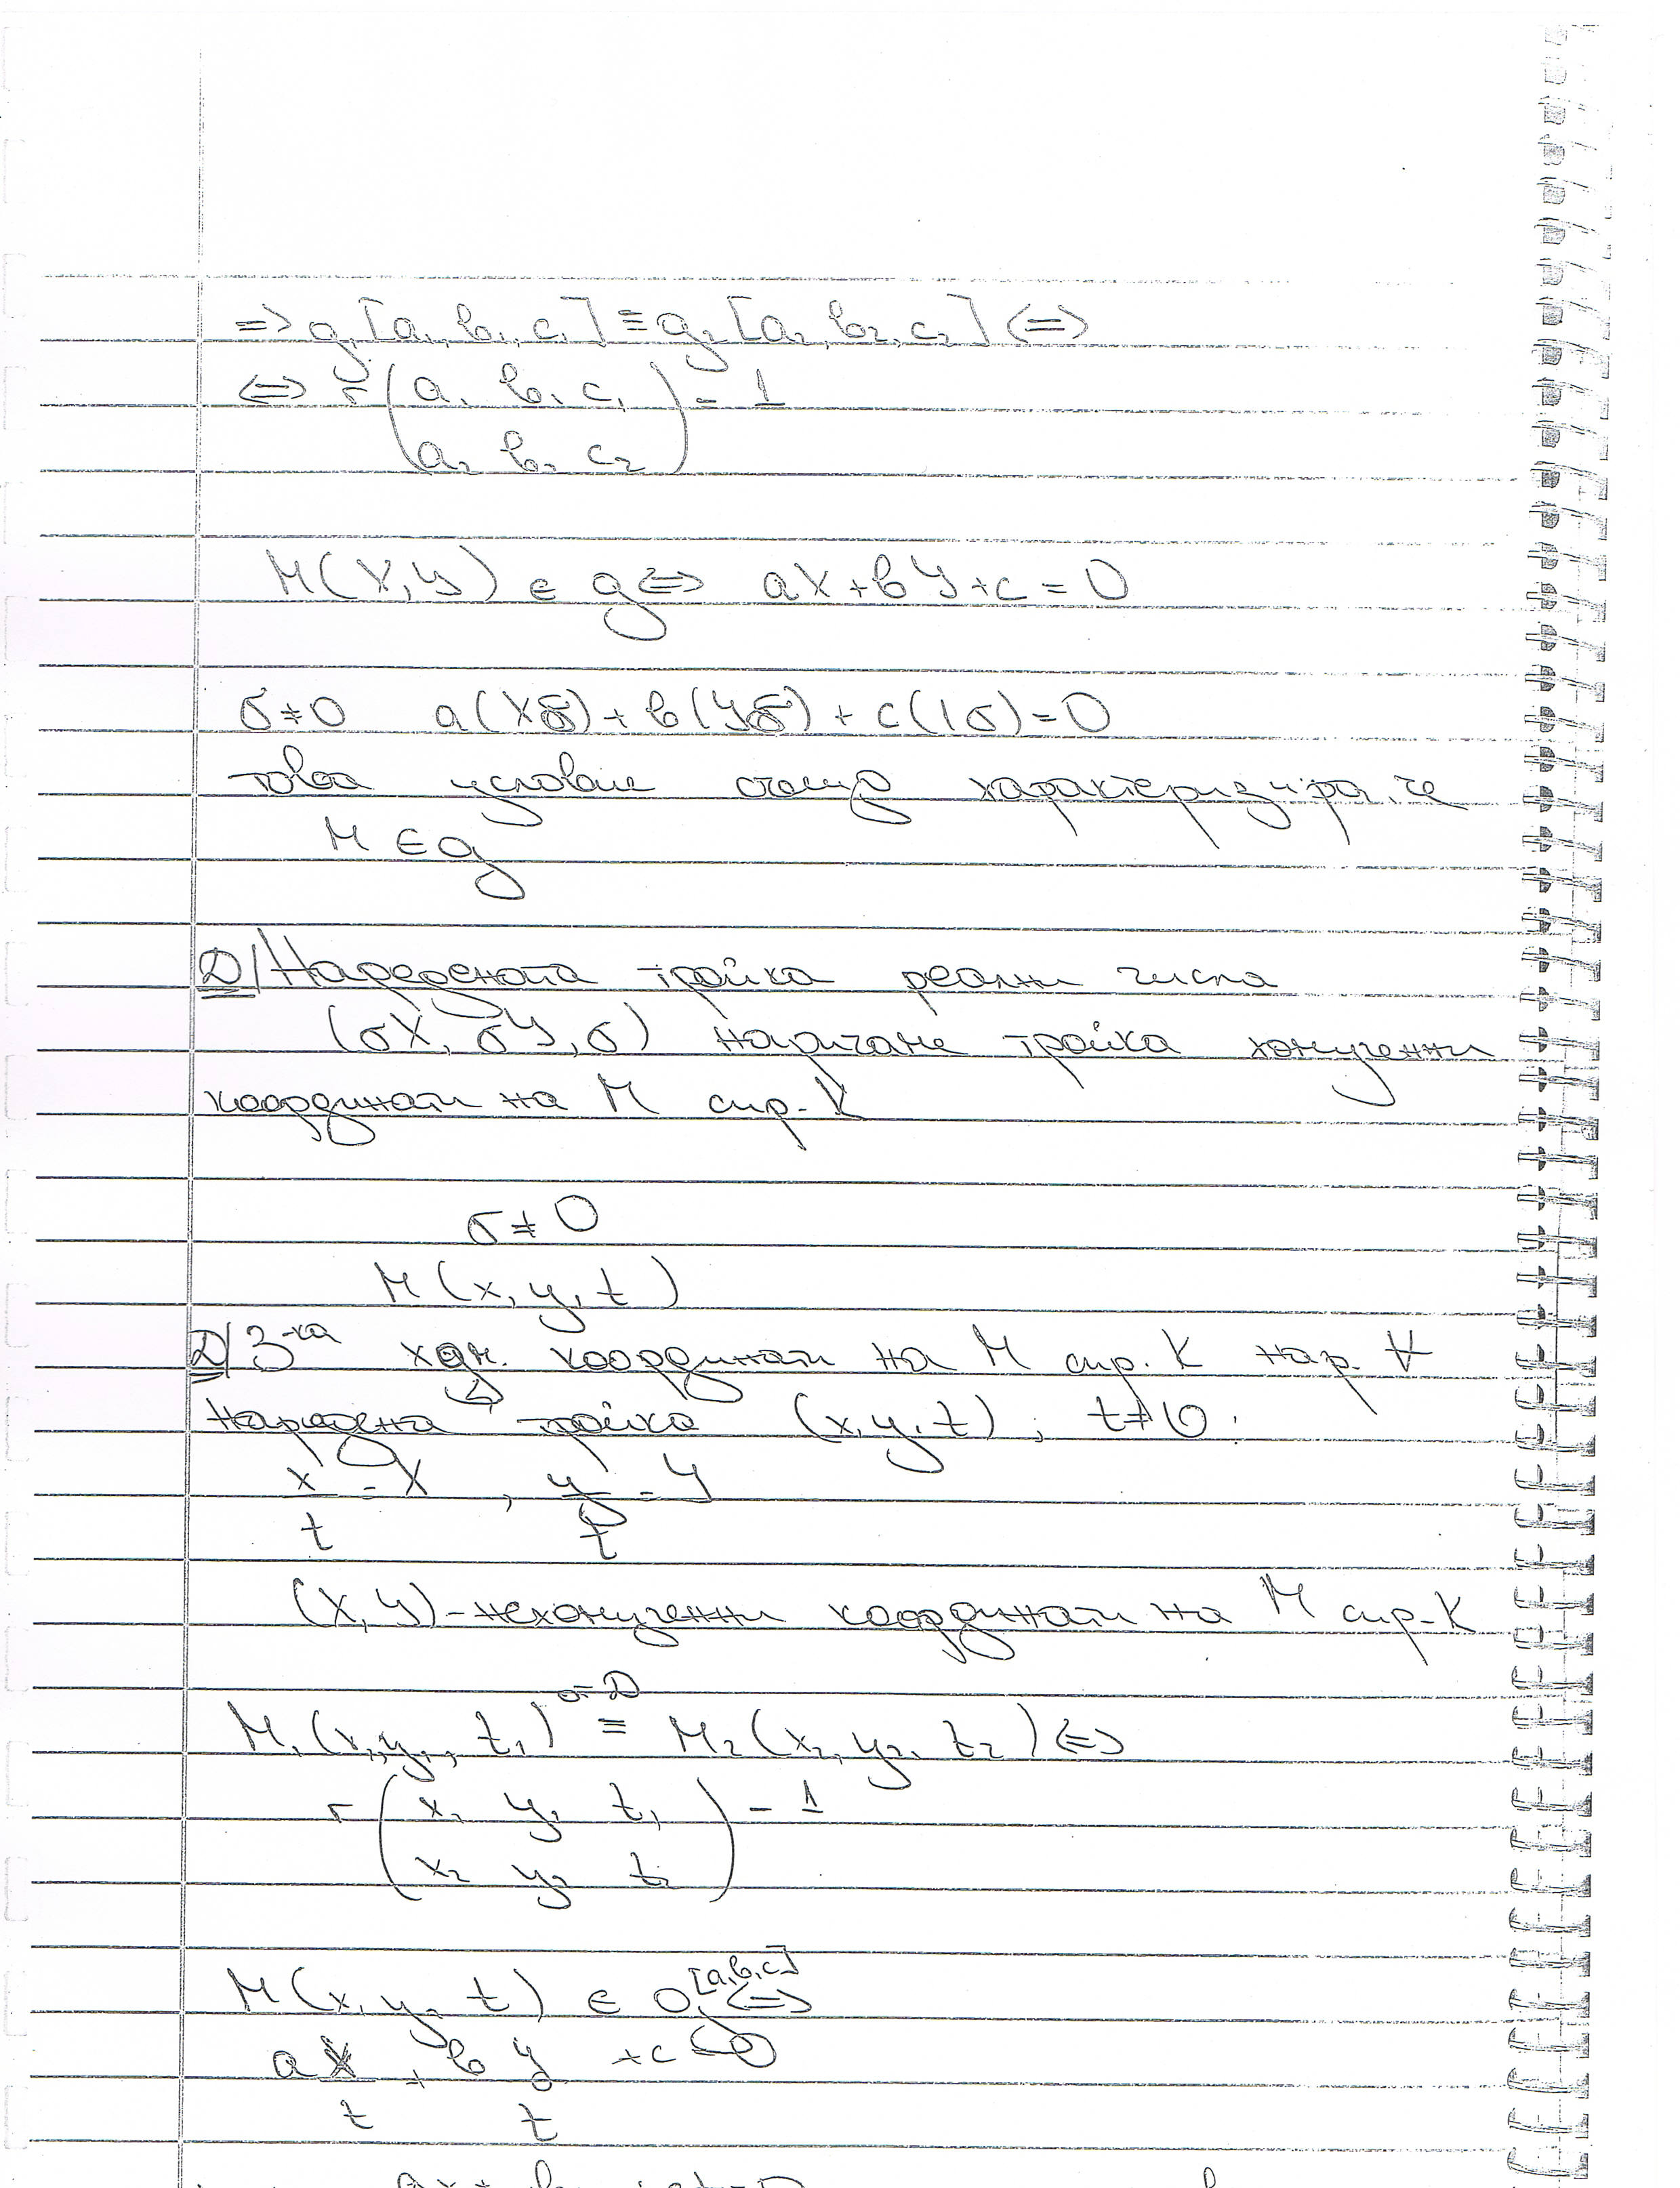 => g₁[a₁, b₁, c₁] ≡ g₂[a₂, b₂, c₂] <=>
<=> r(a₁ b₁ c₁) = 1
(a₂ b₂ c₂)
M(X, Y) ∈ g <=> aX + bY + c = 0
σ ≠ 0 a(Xσ) + b(Yσ) + c(1σ) = 0
това условие също характеризира, че
M ∈ g
D/ Наредената тройка реални числа
(σX, σY, σ) наричаме тройка хомогенни
координати на M спр. K
σ ≠ 0
M(x, y, t)
D/ 3-ка хом. координати на M спр. K нар. ∀
наредена тройка (x, y, t), t ≠ 0:
x/t = X, y/t = Y
(X, Y) - нехомогенни координати на M спр. K
от D
M₁(x₁, y₁, t₁) ≡ M₂(x₂, y₂, t₂) <=>
r(x₁ y₁ t₁) = 1
(x₂ y₂ t₂)
M(x, y, t) ∈ g[a, b, c] <=>
a x/t + b y/t + c = 0